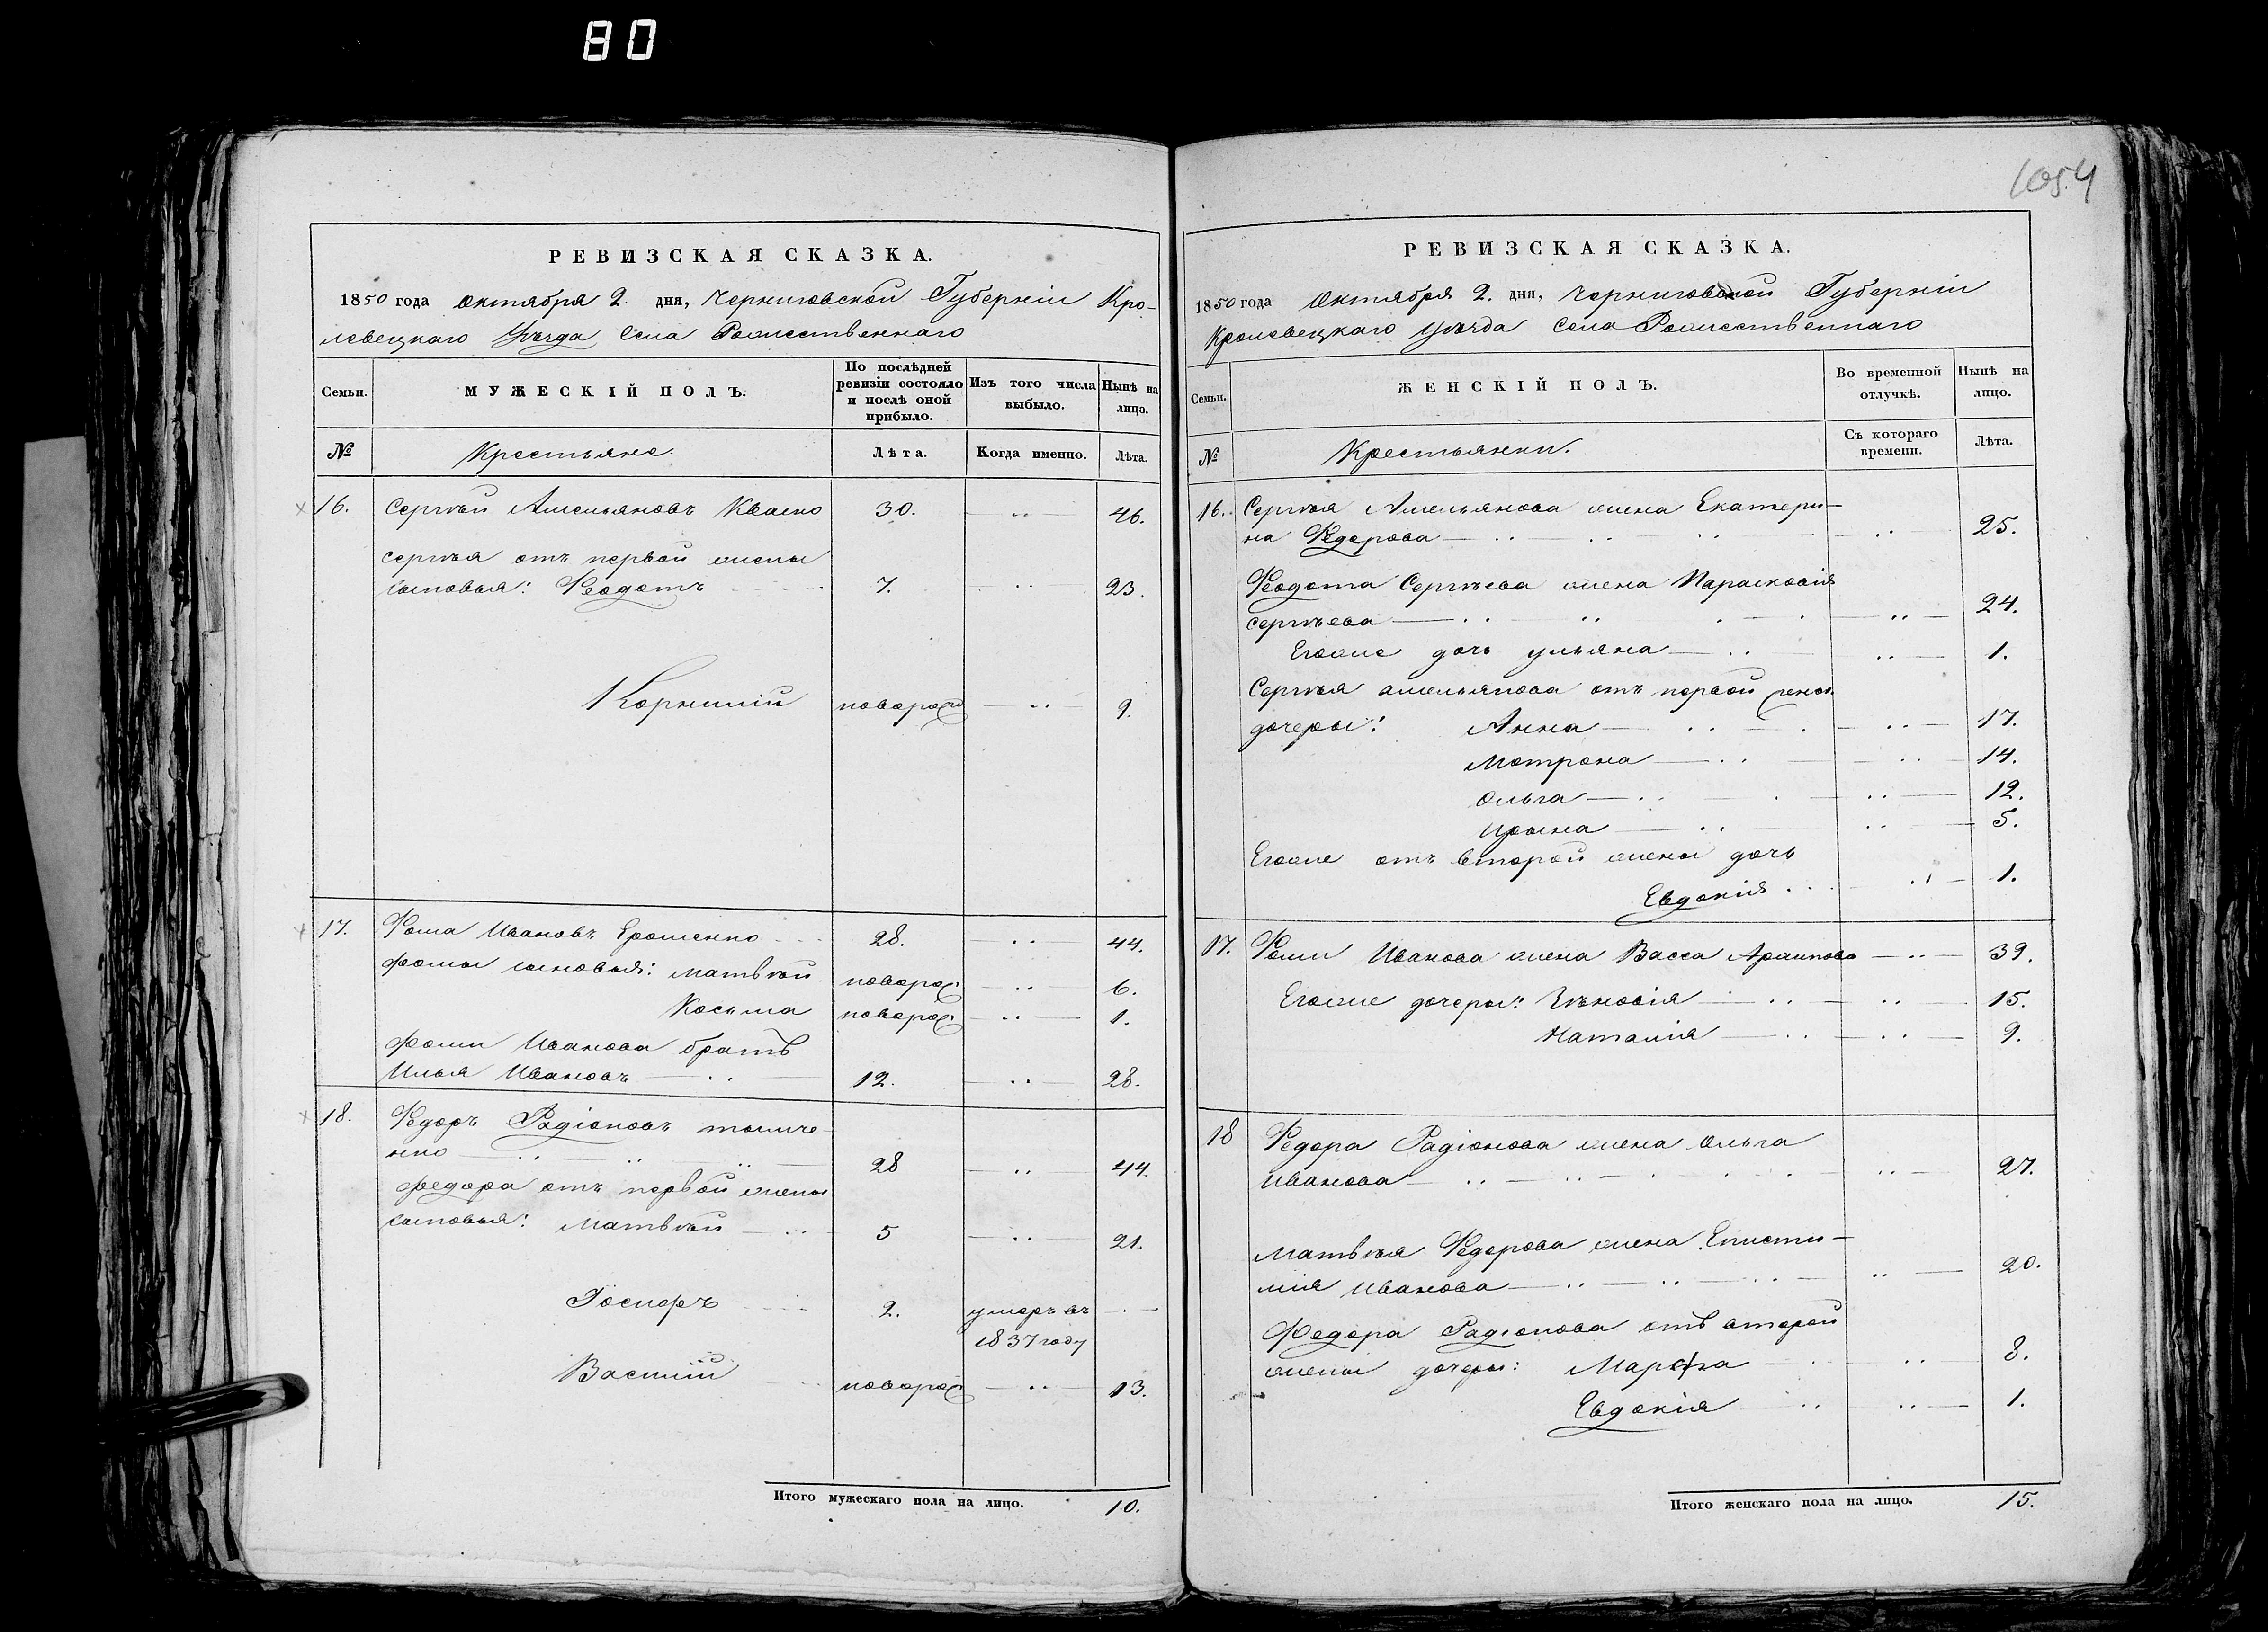 80
1054
РЕВИЗСКАЯ СКАЗКА.
1850 года Октября 2. дня, Черниговской Губерніи Кро-
левецкаго Уѣзда Села Рожественнаго
Семьи.
МУЖЕСКІЙ ПОЛЪ.
По послѣдней ревизіи состояло и послѣ оной прибыло.
Изъ того числа выбыло.
Нынѣ на лицо.
№
Крестьяне.
Лѣта.
Когда именно.
Лѣта.
16. Сергѣй Амельяновъ Кваско 30. — 46.
Сергѣя отъ первой жены
сыновья: Феодотъ 7. — 23.
Корнилій новорож — 9.
17. Фома Ивановъ Ерошенко 28. — 44.
Фомы сыновья: Матвѣй новорож — 6.
Косьма новорож — 1.
Фомы Иванова братъ
Илья Ивановъ — 12. — 28.
18. Федоръ Радіоновъ тимче-
нко — 28 — 44.
Федора отъ первой жены
сыновья: Матвѣй — 5 — 21.
Іосифъ 2. умеръ въ —
1837 году
Василій новорож — 13.
Итого мужескаго пола на лицо. 10.
РЕВИЗСКАЯ СКАЗКА.
1850 года Октября 2. дня, Черниговской Губерніи
Кролевецкаго Уѣзда Села Рожественнаго
Семьи.
ЖЕНСКІЙ ПОЛЪ.
Во временной отлучкѣ.
Нынѣ на лицо.
№
Крестьянки.
Съ котораго времени.
Лѣта.
16. Сергѣя Амельянова жена Екатери-
на Федорова — 25.
Феодота Сергѣева жена Парасковія
Сергѣева — 24.
Егоже дочь Ульяна — 1.
Сергѣя амельянова отъ первой жены
дочеры: Анна — 17.
Мотрона — 14.
Ольга — 12.
Ирына — 5.
Егоже отъ второй жены дочь
Евдокія — 1.
17. Фомы Иванова жена Васса Архипова — 39.
Егоже дочеры: — 15.
Наталія — 9.
18 Федора Радіонова жена Ольга
Иванова — 27.
Матвѣя Федорова жена Еписти-
мія Иванова — 20.
Федора Радіонова отъ второй
жены дочеры: Марфа — 8.
Евдокія — 1.
Итого женскаго пола на лицо. 15.